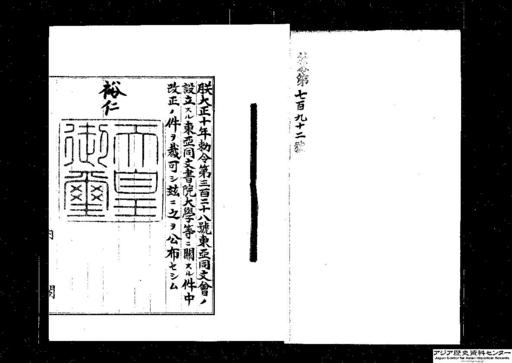 勅令第七百九十二號
朕大正十年勅令第三百二十八號東亞同文會ノ
設立スル東亞同文書院大學等ニ關スル件中
改正ノ件ヲ裁可シ玆ニ之ヲ公布セシム
裕仁
天皇
御璽
内閣
アジア歴史資料センター
Japan Center for Asian Historical Records